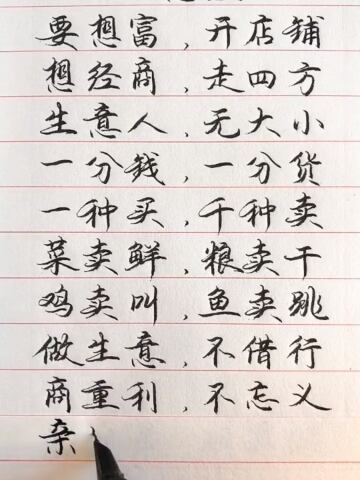 要想富，开店铺
想经商，走四方
生意人，无大小
一分钱，一分货
一种买，千种卖
菜卖鲜，粮卖干
鸡卖叫，鱼卖跳
做生意，不借行
商重利，不忘义
亲